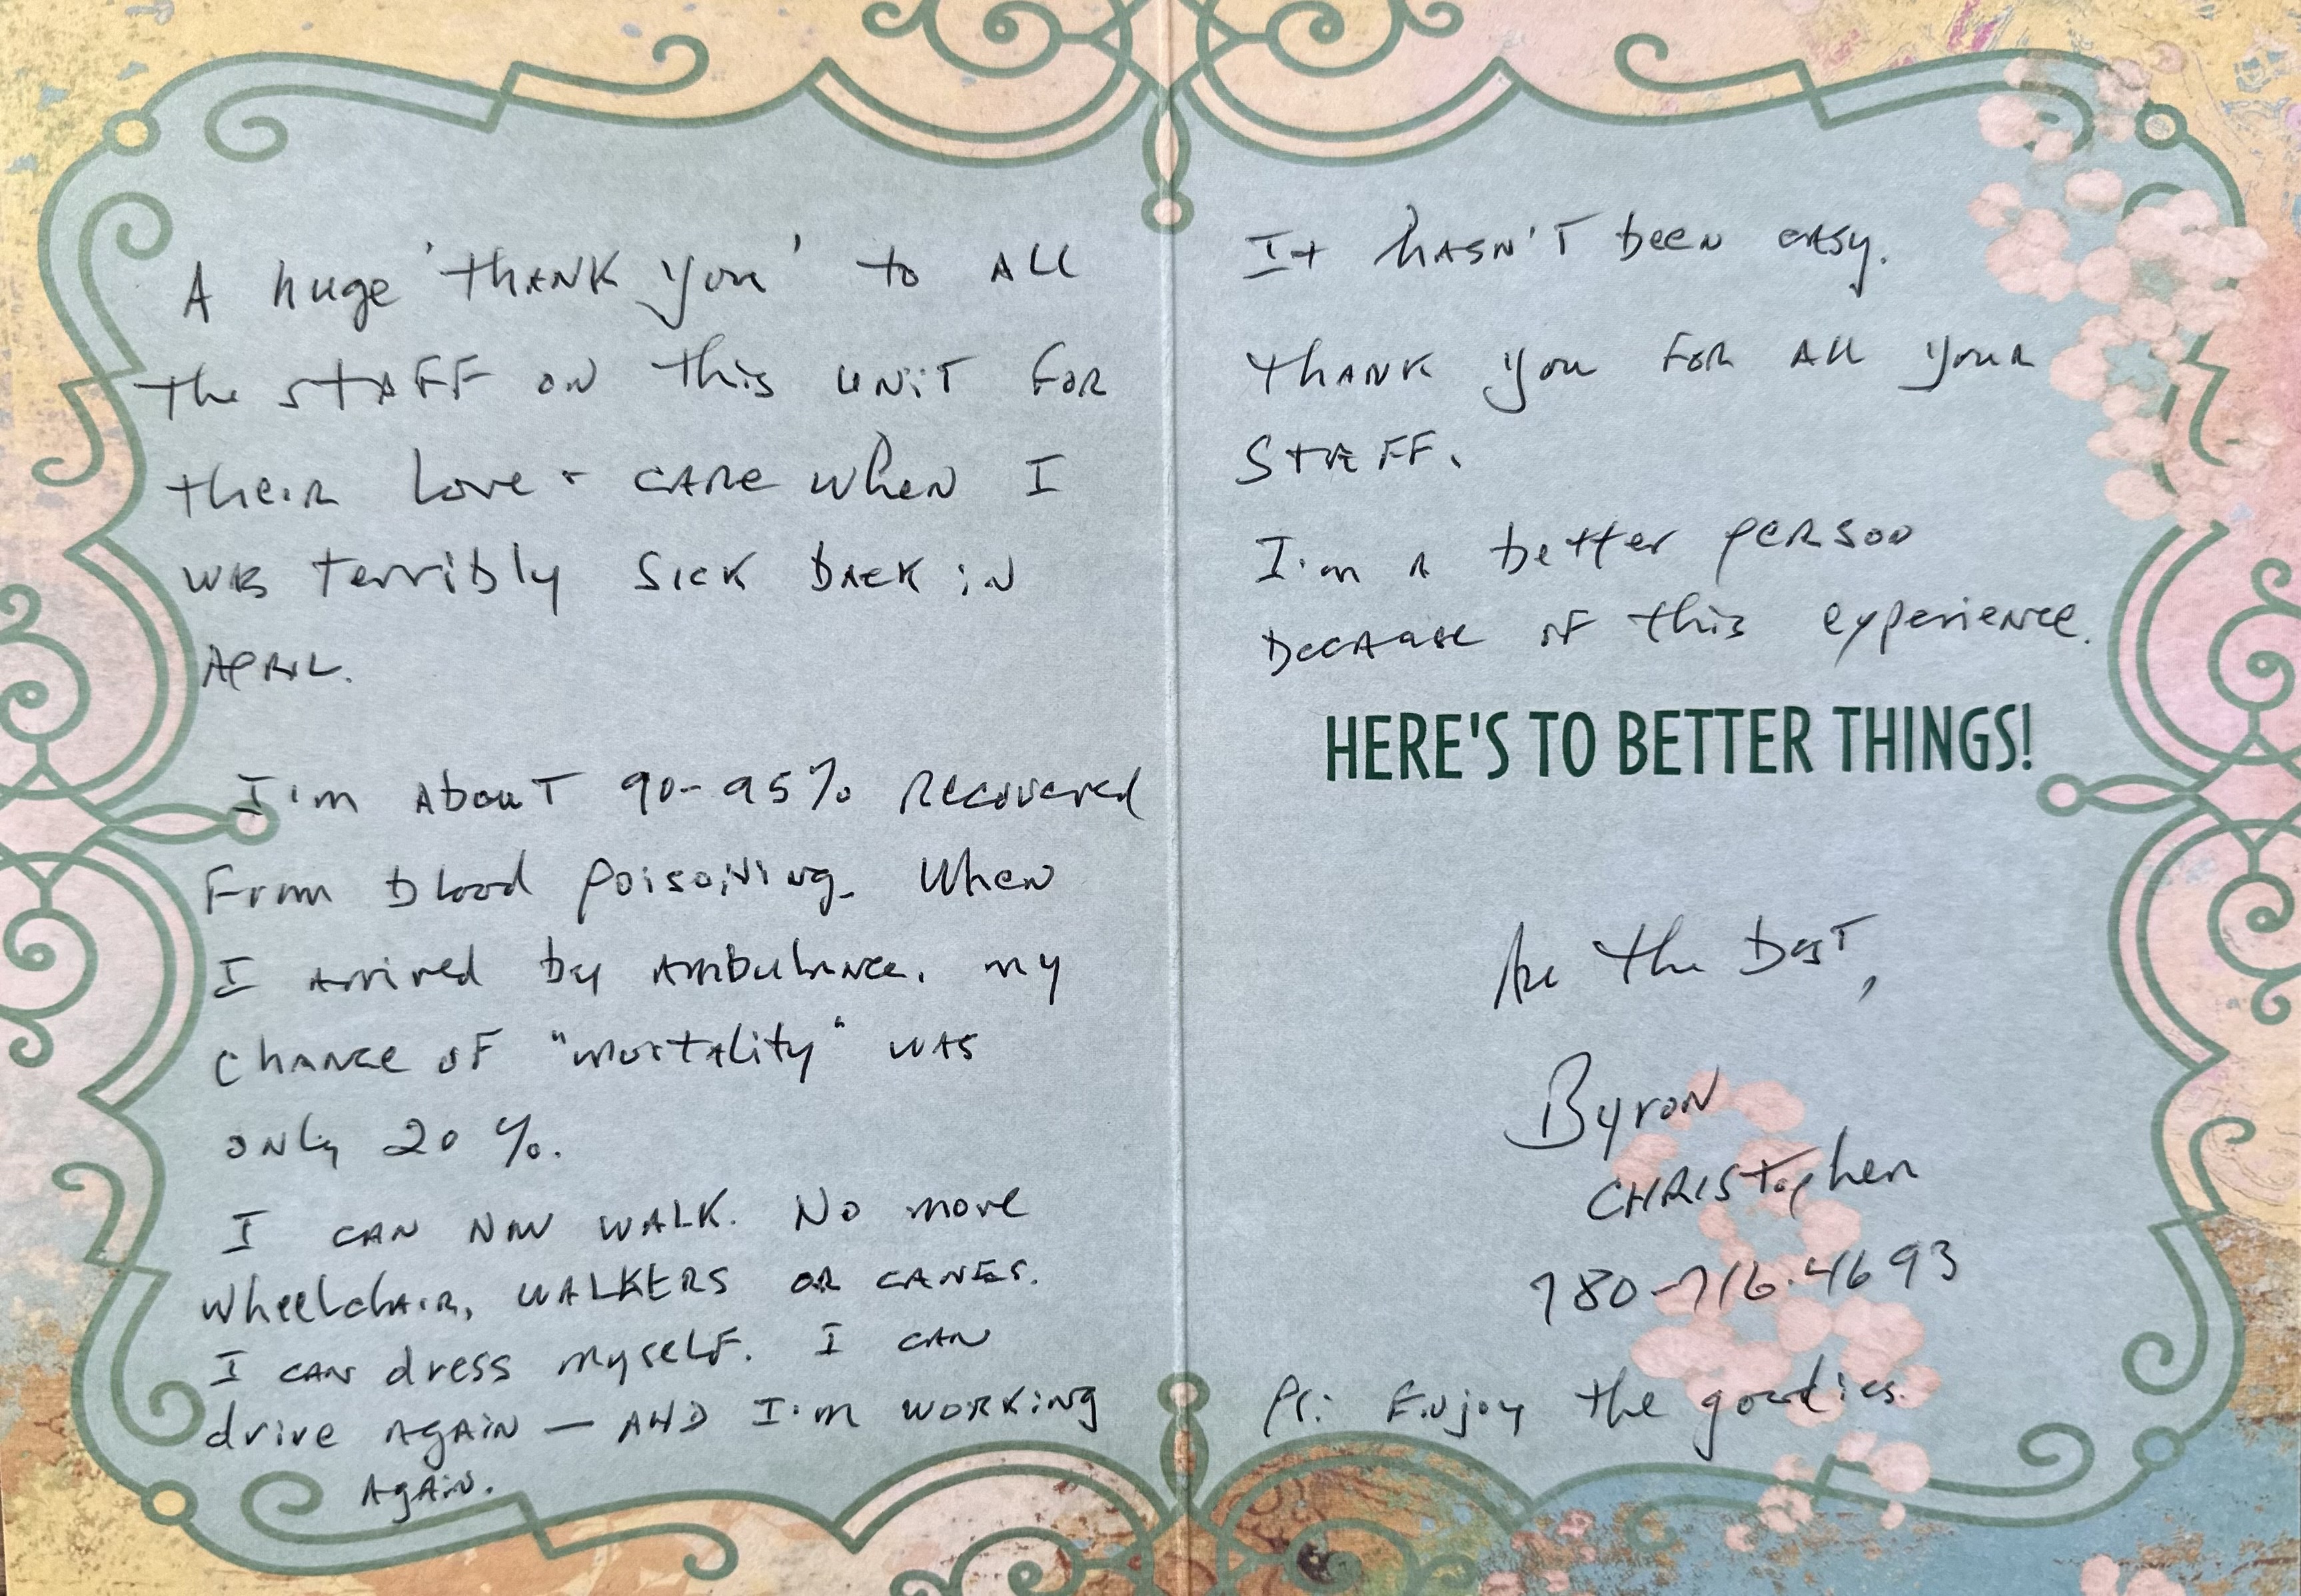 A huge 'thank you' to all
the staff on this unit for
their love + care when I
was terribly sick back in
April.
I'm about 90-95% recovered
from blood poisoning. When
I arrived by ambulance, my
chance of "mortality" was
only 20%.
I can now walk. No more
wheelchair, walkers or canes.
I can dress myself. I can
drive again — and I'm working
again.
It hasn't been easy.
Thank you for all your
staff.
I'm a better person
because of this experience.
HERE'S TO BETTER THINGS!
All the best,
Byron
Christopher
780-716-4693
Ps: Enjoy the goodies.